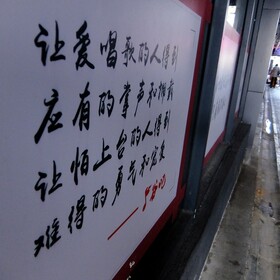 让爱唱歌的人得到
应有的掌声和拥有
让怕上台的人得到
难得的勇气和